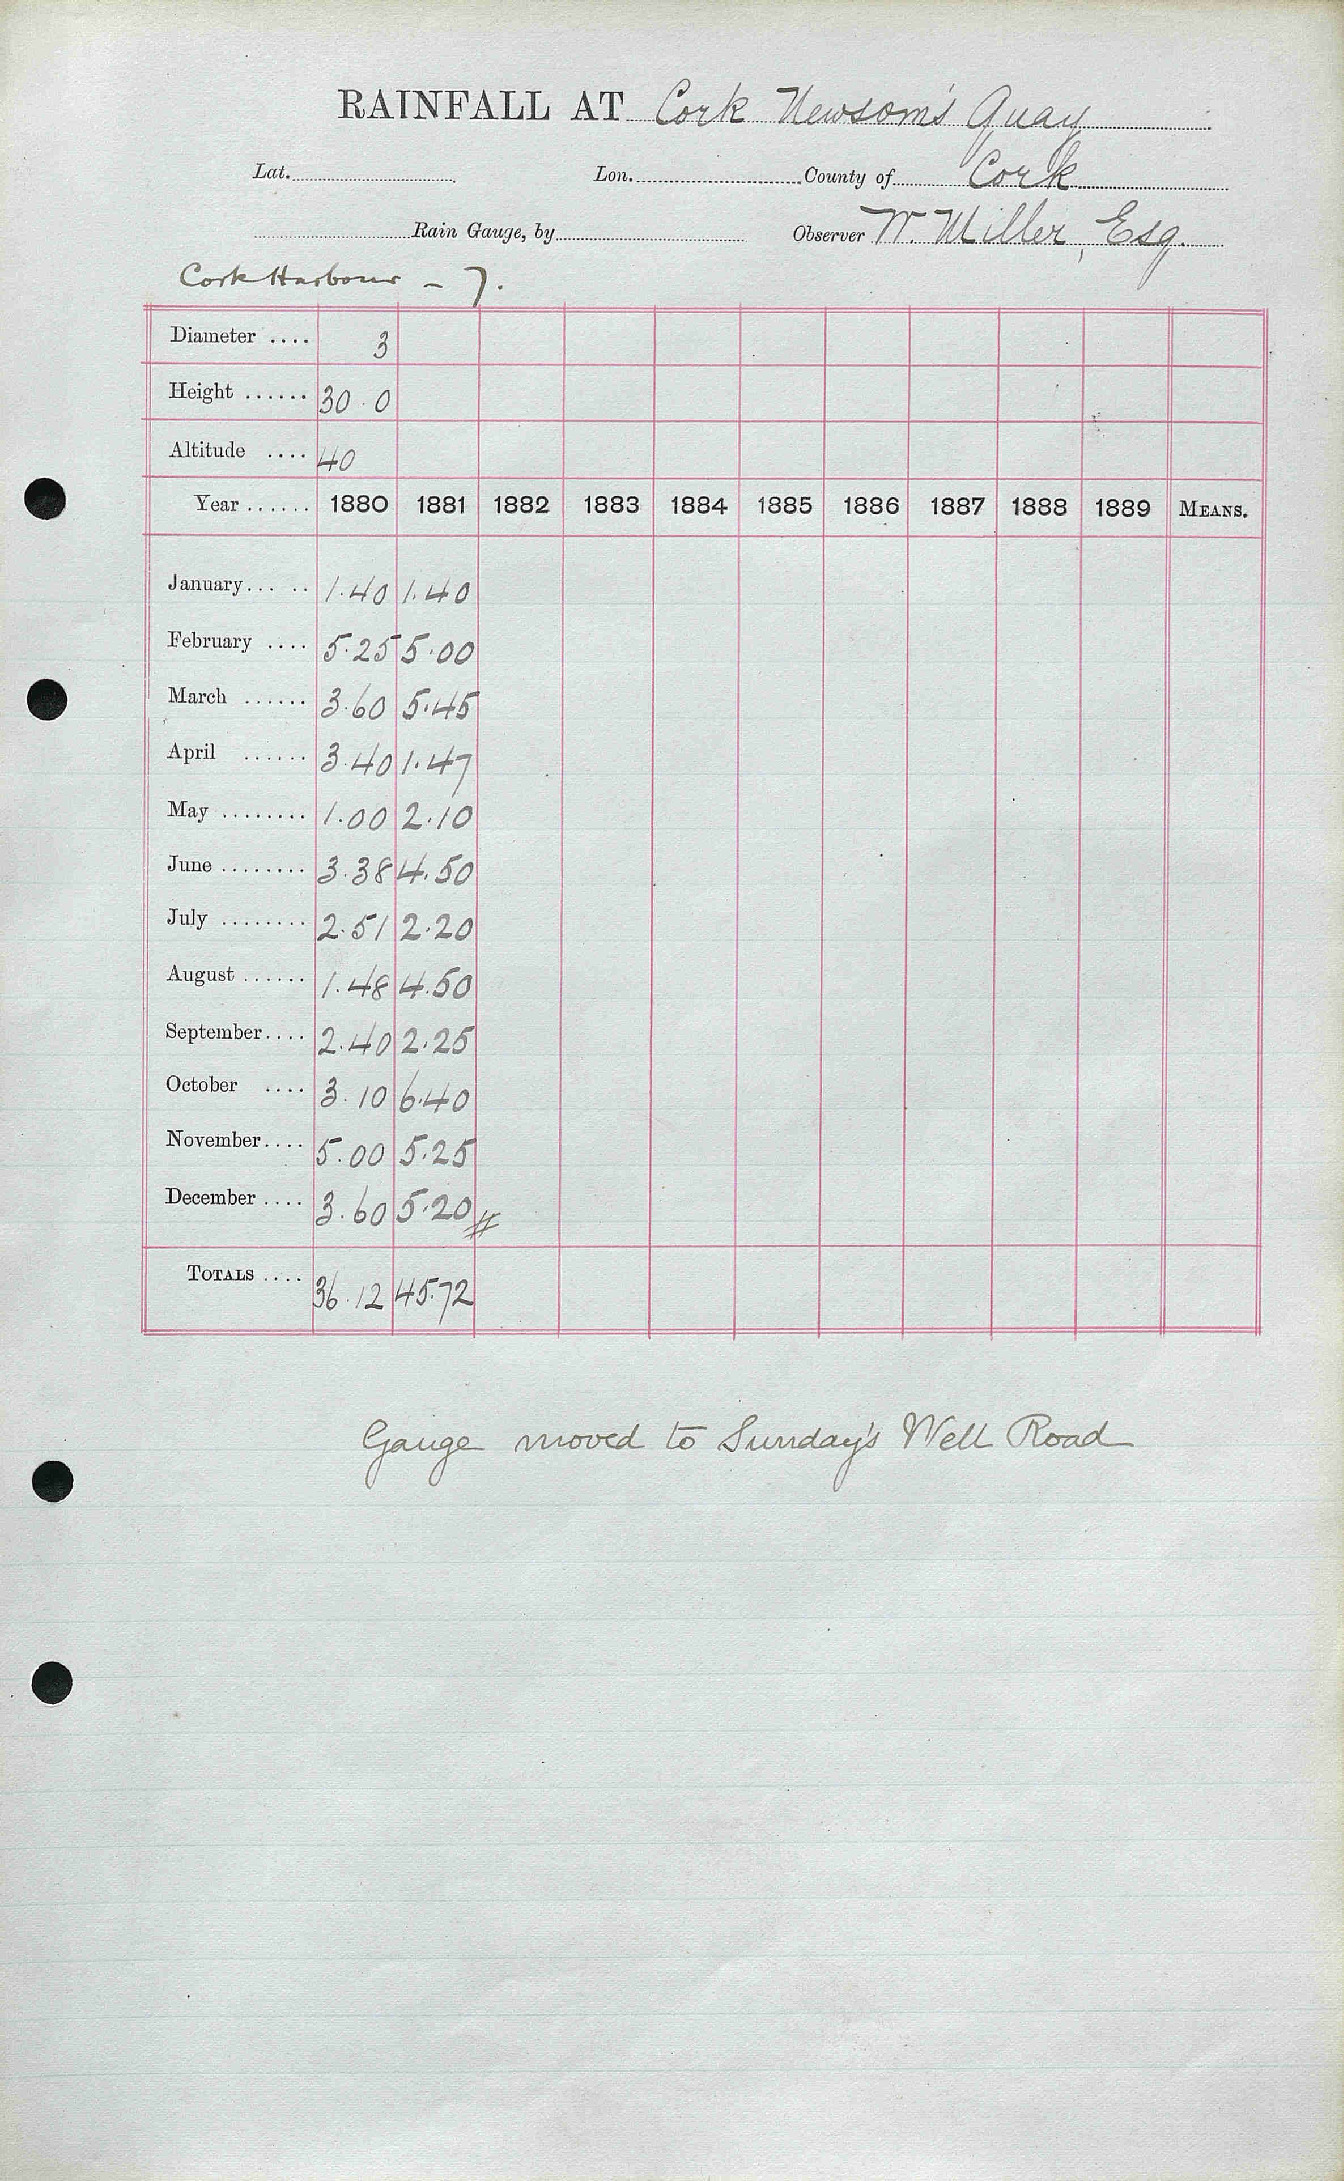 RAINFALL AT Cork Newsom's Quay
Lat. Lon. County of Cork
Rain Gauge, by Observer W. Miller, Esq.
Cork Harbour - 7.
Diameter .... 3
Height ...... 30 0
Altitude .... 40
Year ...... 1880 1881 1882 1883 1884 1885 1886 1887 1888 1889 MEANS.
January... .. 1.40 1.40
February .... 5.25 5.00
March ...... 3.60 5.45
April ...... 3.40 1.47
May ........ 1.00 2.10
June ........ 3.38 4.50
July ........ 2.51 2.20
August ...... 1.48 4.50
September.... 2.40 2.25
October .... 3.10 6.40
November.... 5.00 5.25
December .... 3.60 5.20 #
TOTALS .... 36.12 45.72
Gauge moved to Sunday's Well Road